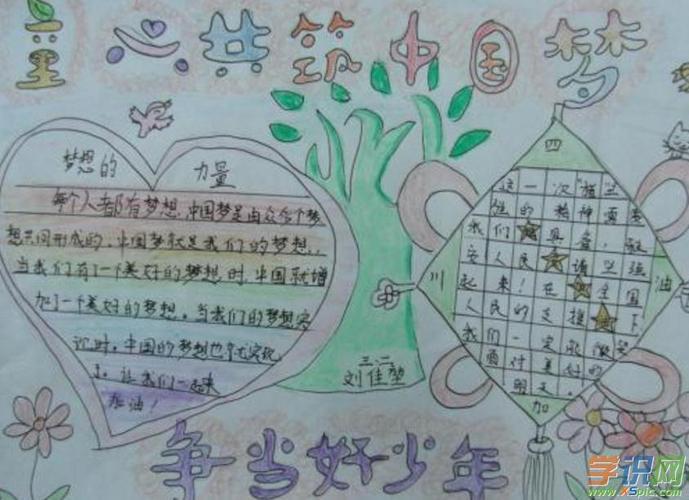 童心共筑中国梦
梦想的 力量
每个人都有梦想,中国梦是由众多个梦
想共同形成的,中国梦就是我们的梦想,
当我们有了一个美好的梦想时,中国就增
加了一个美好的梦想,当我们的梦想实
现时,中国的梦想也就实现
了,让我们一起来
加油!
三、二
刘佳堃
四
川
加
油
这一次"相
的精神
我们
灾人民 请坚强
起来!在 全国
人民的支援 下
我们一定能微笑
面对美好的
明天。
争当好少年
学识网
www.xSpic.com